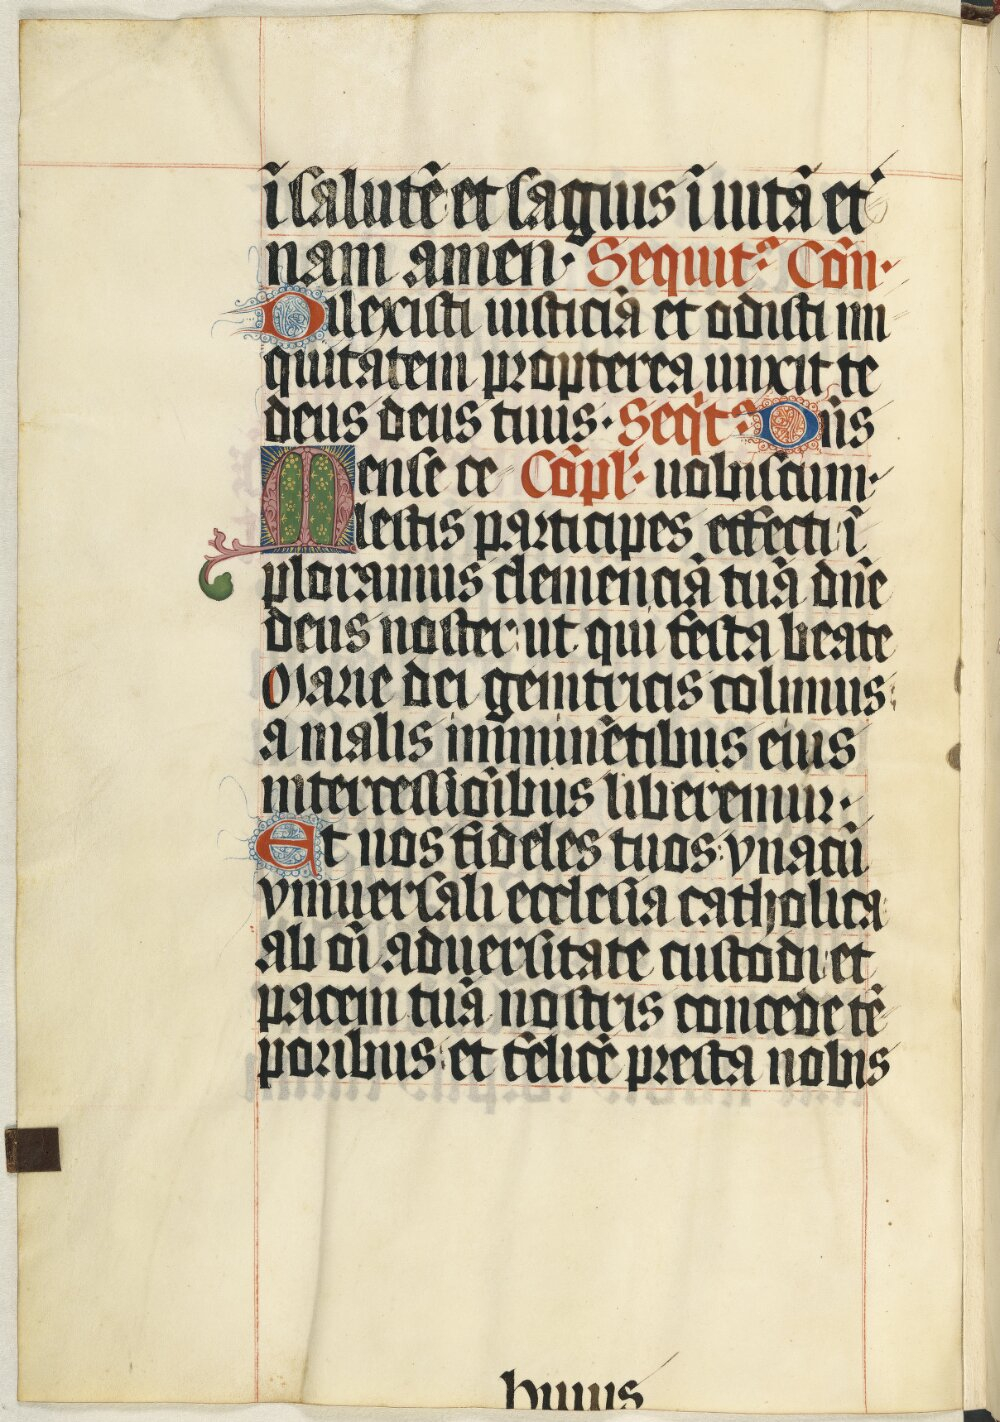 ī salutē et sagĩus ī uitā et
nam amen· Sequit᷑ Cōn·
Dilexisti iusticiā et odisti ini
quitatem propterea unxit te
deus deus tuus· Seq̄t᷑ Dn̄s
Mense ce Cōpl᷑· uobiscum·
lestis participes effecti: ī
ploramus clemenciā tuā dn̄e
deus noster: ut qui festa beate
Marie dei genitricis colimus
a malis imminētibus eius
intercessiōibus liberemur·
Et nos fideles tuos: vnacū
vniuersali ecclesia catholica
ab oī aduersitate custodi: et
pacem tuā nostris concede tē
poribus: et felicē presta nobis
huius